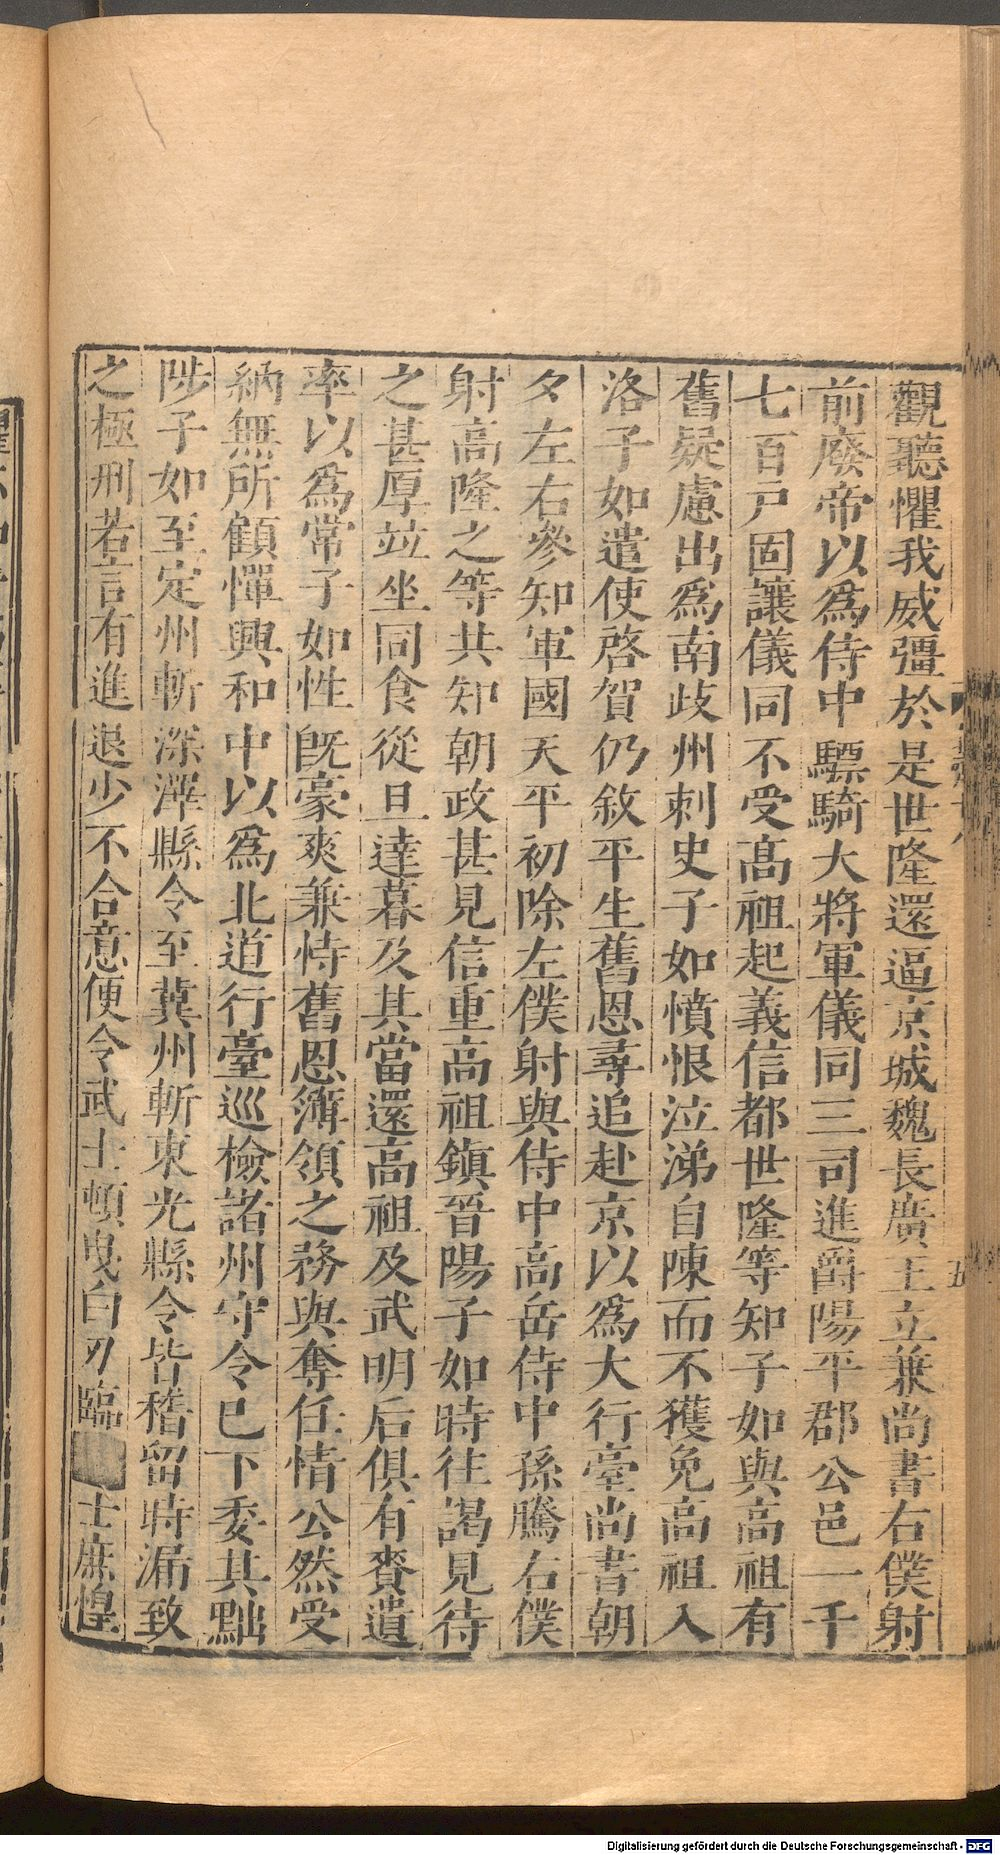 觀聽懼我威彊於是世隆還逼京城魏長廣王立兼尚書右僕射
前廢帝以爲侍中驃騎大將軍儀同三司進爵陽平郡公邑一千
七百戸固讓儀同不受髙祖起義信都世隆等知子如與高祖有
舊疑慮出爲南歧州刺史子如憤恨泣涕自陳而不獲免高祖入
洛子如遣使啓賀仍敘平生舊恩尋追赴京以爲大行臺尚書朝
夕左右參知軍國天平初除左僕射與侍中高岳侍中孫騰右僕
射高隆之等共知朝政甚見信重高祖鎭晉陽子如時往謁見待
之甚厚竝坐同食從旦達暮及其當還高祖及武明后俱有賚遺
率以爲常子如性旣豪爽兼恃舊恩簿領之務與奪任情公然受
納無所顧憚興和中以爲北道行臺巡檢諸州守令已下委其黜
陟子如至定州斬深澤縣令至冀州斬東光縣令皆稽留時漏致
之極刑若言有進退少不合意便令武士頓曳白刃臨士庶惶
五
Digitalisierung gefördert durch die Deutsche Forschungsgemeinschaft - DFG